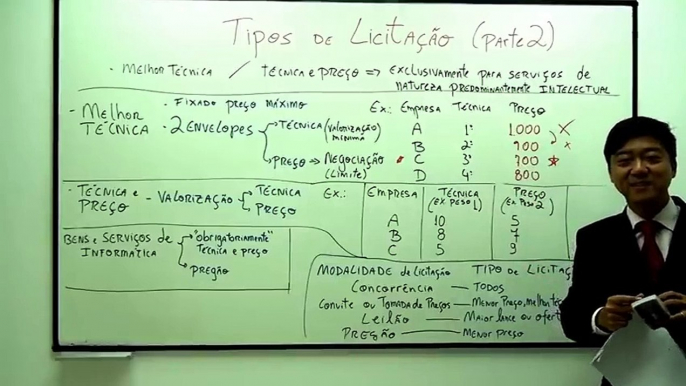 Tipos de Licitação (parte 2)
- Melhor técnica / técnica e preço => exclusivamente para serviços de
natureza predominantemente intelectual
- Melhor técnica
- Fixado preço máximo
- 2 envelopes
Técnica (valorização mínima)
Preço → Negociação (limite)
Ex.: Empresa Técnica Preço
A 1ª 1000 X
B 2ª 900 x
• C 3ª 700 *
D 4ª 800
- Técnica e preço - Valorização
Técnica
Preço
Ex.: Empresa Técnica (Ex. peso 1) Preço (Ex. peso 2)
A 10 5
B 8 7
C 5 9
Bens e serviços de informática
"obrigatoriamente" técnica e preço
pregão
Modalidade de licitação Tipo de licitaç
Concorrência — Todos
Convite ou Tomada de preços — Menor preço, melhor téc
Leilão — Maior lance ou ofert
Pregão — Menor preço